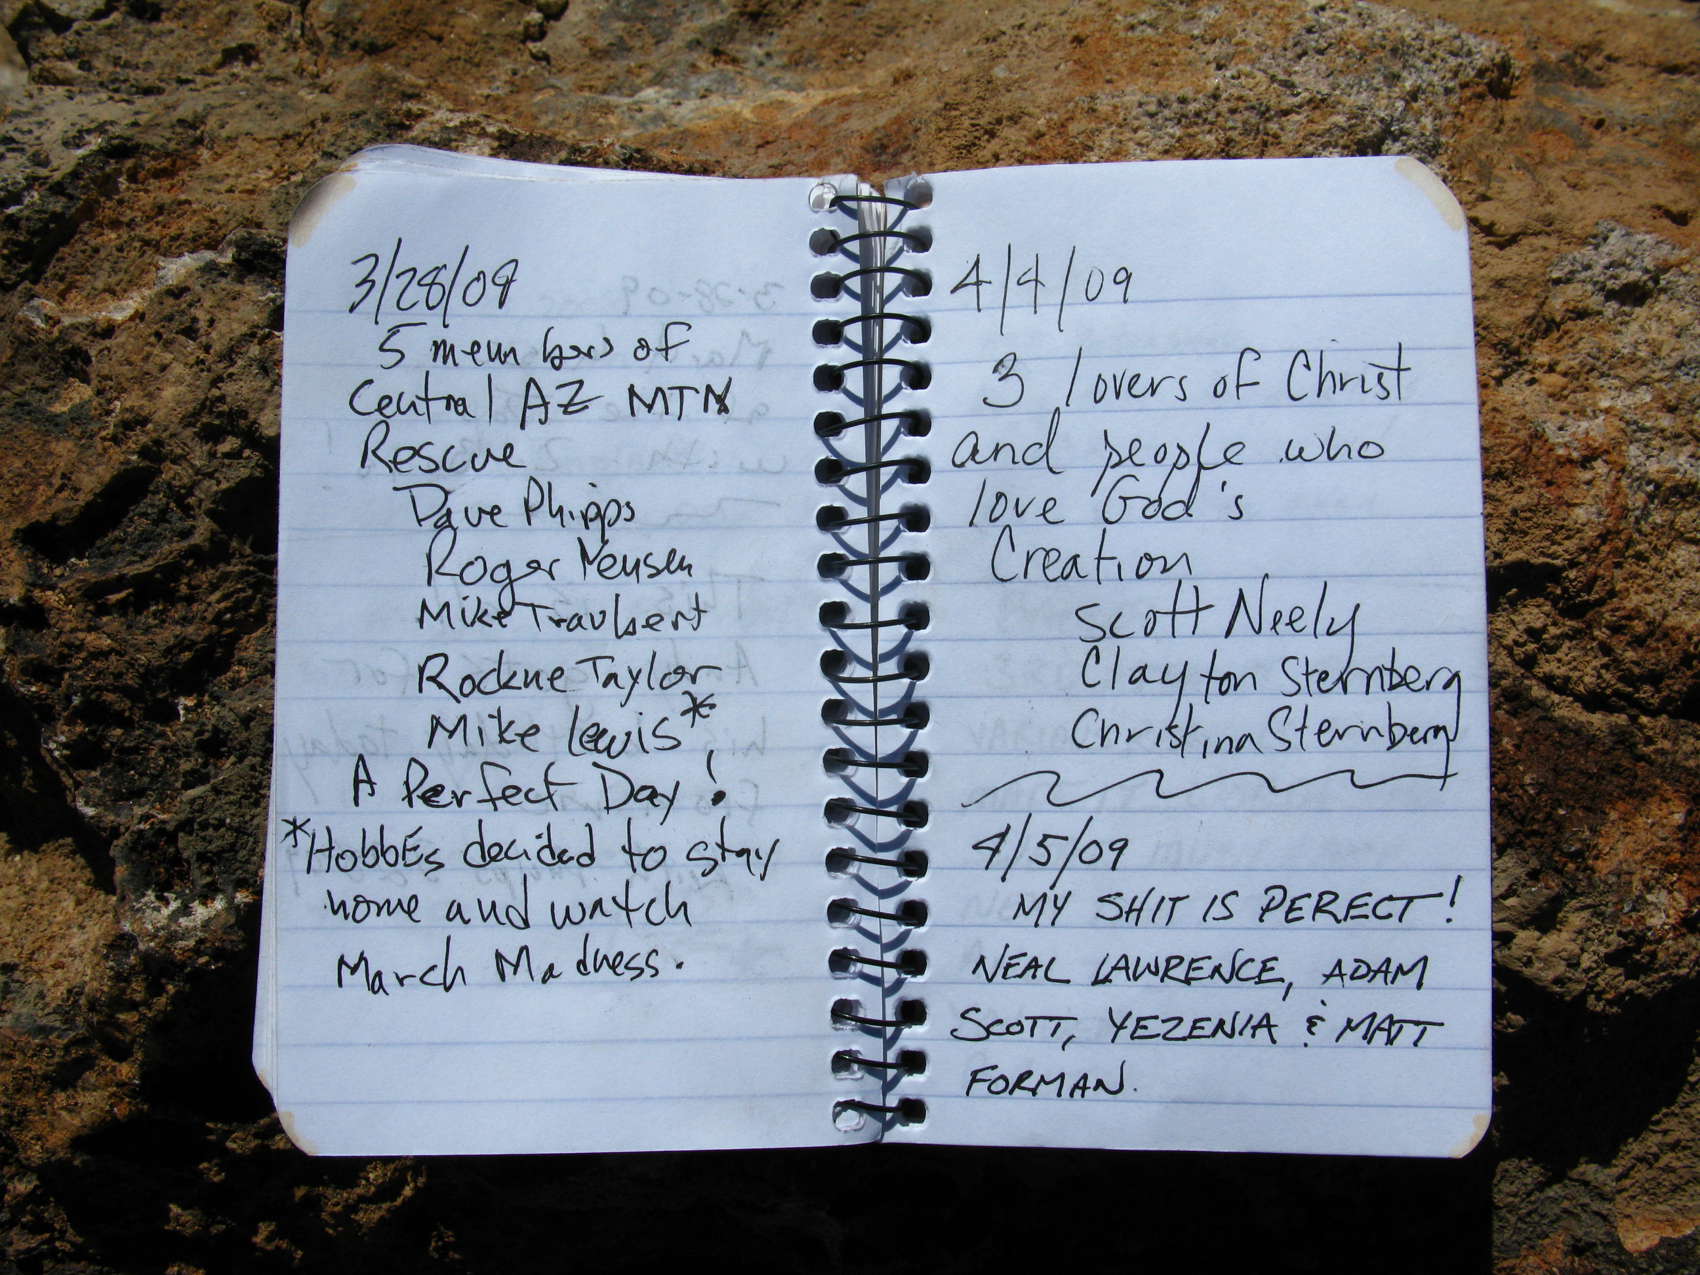 3/28/09
5 members of
Central AZ MTN
Rescue
Dave Phipps
Roger
Mike Traubert
Rockne Taylor
Mike Lewis*
A Perfect Day!
*HobbEs decided to stay
home and watch
March Madness.
4/4/09
3 lovers of Christ
and people who
love God's
Creation
Scott Neely
Clayton Sternberg
Christina Sternberg
4/5/09
MY SHIT IS PERECT!
NEAL LAWRENCE, ADAM
SCOTT, YEZENIA & MATT
FORMAN.